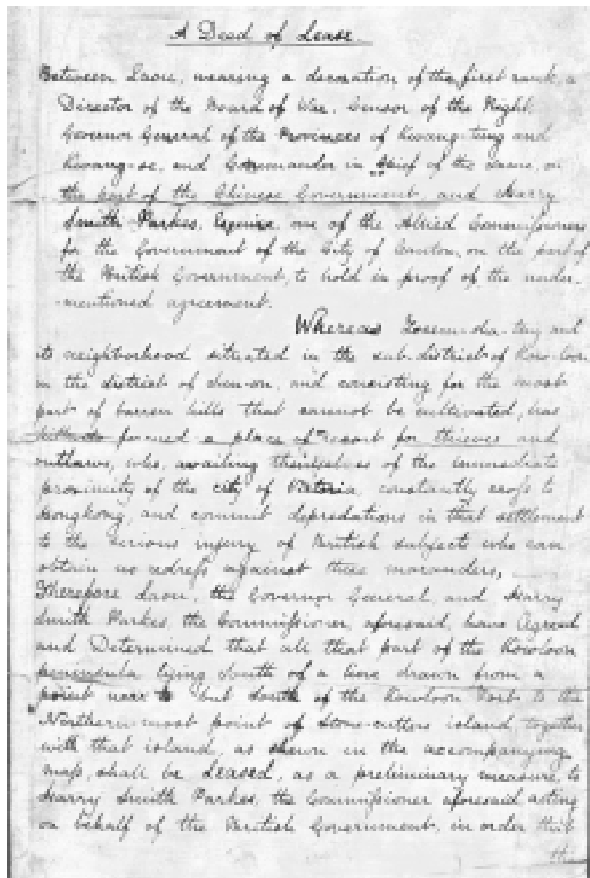 A Deed of Lease.
Between Laou, wearing a decoration of the first rank, a
Director of the Board of War, Censor of the Right
Governor General of the Provinces of Kwang-tung and
Kwang-se, and Commander in Chief of the same, on
the part of the Chinese Government, and Harry
Smith Parkes, Esquire, one of the Allied Commissioners
for the Government of the City of Canton, on the part of
the British Government, to hold in proof of the under-
-mentioned agreement.
Whereas and
its neighborhood situated in the sub-district of Kow-loon
in the district of Sin-on, and consisting for the most
part of barren hills that cannot be cultivated, has
hitherto formed a place of resort for thieves and
outlaws, who, availing themselves of the immediate
proximity of the city of Victoria, constantly cross to
Hongkong, and commit depredations in that settlement
to the serious injury of British subjects who can
obtain no redress against these marauders,
Therefore Laou, the Governor General, and Harry
Smith Parkes, the Commissioner, aforesaid, have Agreed
and Determined that all that part of the Kowloon
peninsula lying South of a line drawn from a
point near to but South of the Kowloon Fort to the
Northern-most point of Stone-cutters island, together
with that island, as shewn in the accompanying
map, shall be Leased, as a preliminary measure, to
Harry Smith Parkes, the Commissioner aforesaid acting
on behalf of the British Government, in order that
th